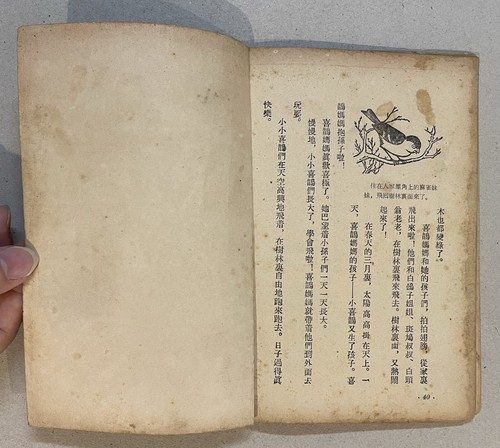 住在人家屋角上的麻雀妹
妹,飛回樹林裏面來了。
木也都變綠了。
喜鵲媽媽和她的孩子們,拍拍翅膀,從家裏
飛出來啦!他們和白鴿子姐姐、斑鳩叔叔、白頭
翁老老,在樹林裏飛來飛去。樹林裏面,又熱鬧
起來了!
在春天的三月裏,太陽高高掛在天上。一
天,喜鵲媽媽的孩子——小喜鵲又生了孩子。喜
鵲媽媽抱孫子啦!
喜鵲媽媽眞歡喜極了。她巴望着小孫子們一天一天長大。
慢慢地,小小喜鵲們長大了,學會飛啦!喜鵲媽媽就帶着他們到外面去
玩耍。
小小喜鵲們在天空高興地飛着,在樹林裏自由地跑來跑去。日子過得眞
快樂。
·40·